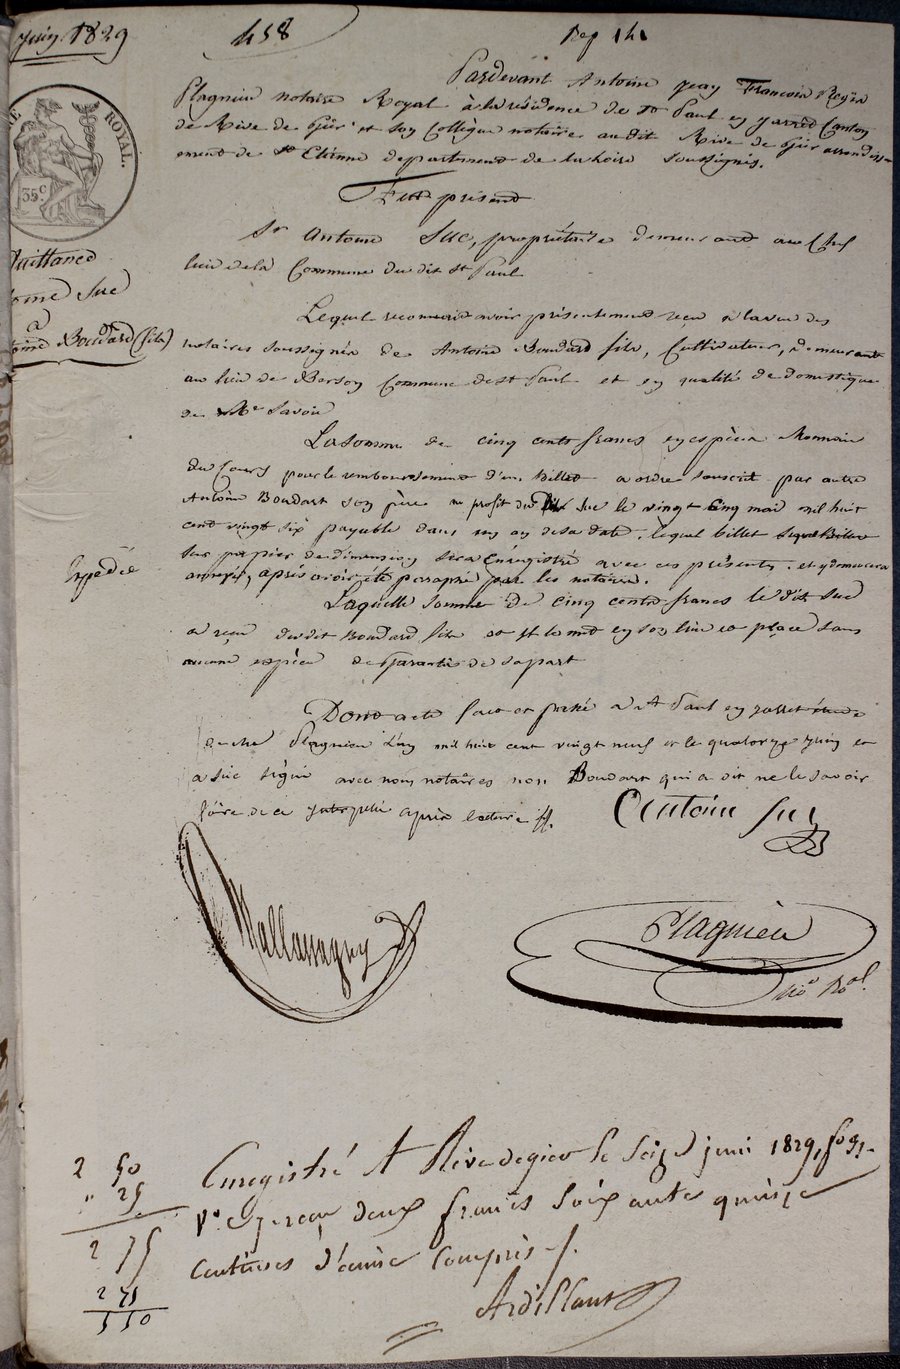 Juin 1829
458
Rep 141
ROYAL.
35c
Quittance
Antoine Suc
à
Antoine Boudard (fils)
Pardevant Antoine Jean François Régis
Plagnieu notaire Royal à la résidence de St Paul en Jarred Canton
de Rive de Gier et son Collègue notaire audit Rive de Gier arrondisse=
ement de St Etienne département de la Loire soussignés.
Fut présent
Sr Antoine Suc, propriétaire demeurant au
lieu de la Commune du dit St Paul
Lequel reconnait avoir présentement reçu à la vue des
notaires soussignés de Antoine Boudard fils, Cultivateur, demeurant
au lieu de Berson Commune de St Paul et en qualité de domestique
de Mr Savoie
La somme de cinq cents francs en espèces Monnaie
du Cours pour le remboursement d'un billet à ordre souscrit par autre
Antoine Boudart son père au profit du dit Suc le vingt Cinq mai mil huit
cent vingt six payable dans un an de sa date, lequel billet
sur papier de dimension sera Enregistré avec ces présentes et y demeurera
annexé, après avoir été paraphé par les notaires.
Expédié
Laquelle somme de cinq cents francs le dit Suc
a reçu du dit Boudard fils et le met en son lieu et place sans
aucune espèce de Garantie de sa part
Dont acte fait et passé à St Paul en Jarret étude
de Me Plagnieu L'an mil huit cent vingt neuf et le quatorze Juin et
a Suc signé avec nous notaires non Boudart qui a dit ne le savoir
faire de ce interpellé après lecture
Antoine Suc
Mallassagny
Plagnieu
No re Ro al.
Enregistré A Rive de gier le Seize juin 1829, fo 91
Vo C reçu deux francs Soixante quinze
centimes dixième compris
Ardillant
2 50
" 25
2 75
2 75
5 50